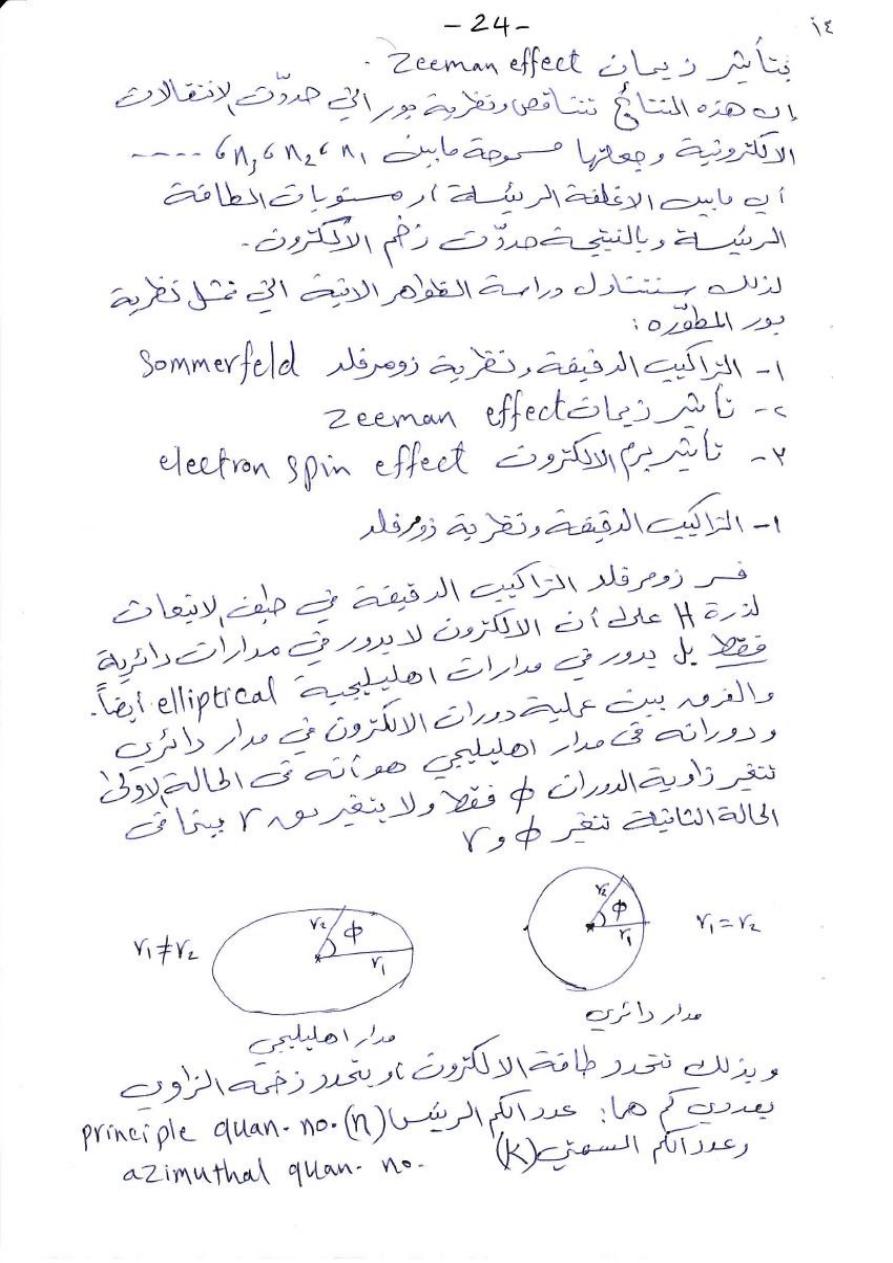 - 24 -
١٤
بتأثير زيمان Zeeman effect .
إن هذه النتائج تتناقض ونظرية بور التي حددّت الانتقالات
الالكترونية وجعلتها مسموحة مابين n₁ ، n₂ ، n₃ ، ----
أي مابين الاغلفة الرئيسة أو مستويات الطاقة
الرئيسة وبالنتيجة حددّت زخم الالكترون .
لذلك سنتناول دراسة الظواهر الاتية التي تمثل نظرية
بور المطوّره :
١- التراكيب الدقيقة ونظرية زومرفلد Sommerfeld
٢- تأثير زيمان Zeeman effect
٣- تأثير برم الالكترون electron spin effect
١- التراكيب الدقيقة ونظرية زومرفلد
فسر زومرفلد التراكيب الدقيقة في طيف الانبعاث
لذرة H على أن الالكترون لا يدور في مدارات دائرية
فقط بل يدور في مدارات اهليليجية elliptical أيضاً .
والفرق بين عملية دوران الالكترون في مدار دائري
ودورانه في مدار اهليليجي هو أنه في الحالة الاولى
تتغير زاوية الدوران ϕ فقط ولا يتغير نق r بينما في
الحالة الثانية تتغير ϕ و r
r₁ = r₂
r₂
ϕ
r₁
مدار دائري
r₁ ≠ r₂
r₂
ϕ
r₁
مدار اهليليجي
وبذلك تتحدد طاقة الالكترون أو يتحدد زخمه الزاوي
بعددي كم هما : عدد الكم الرئيس (n) principle quan. no.
وعدد الكم السمتي (k) azimuthal quan. no.